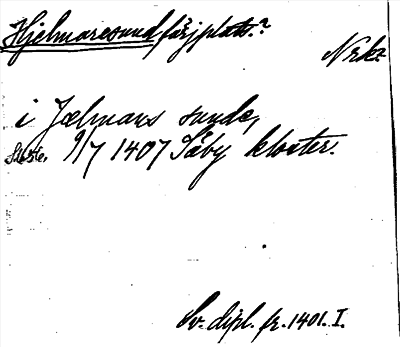 Hjelmaresund färjplats.?
Nrke
i Jælmars sunde,
9/7 1407 Säby kloster.
Sv. dipl. fr. 1401. I.